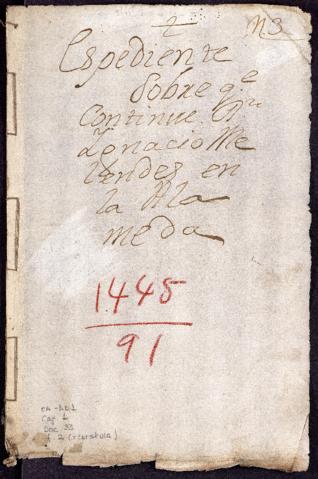 2 N 3
Espediente
sobre q.e
continue Dn
Ygnacio Me
lendes en
la Ala
meda
1445
91
CA-AD1
Caj 1
Doc 33
f. 2 (caratula)